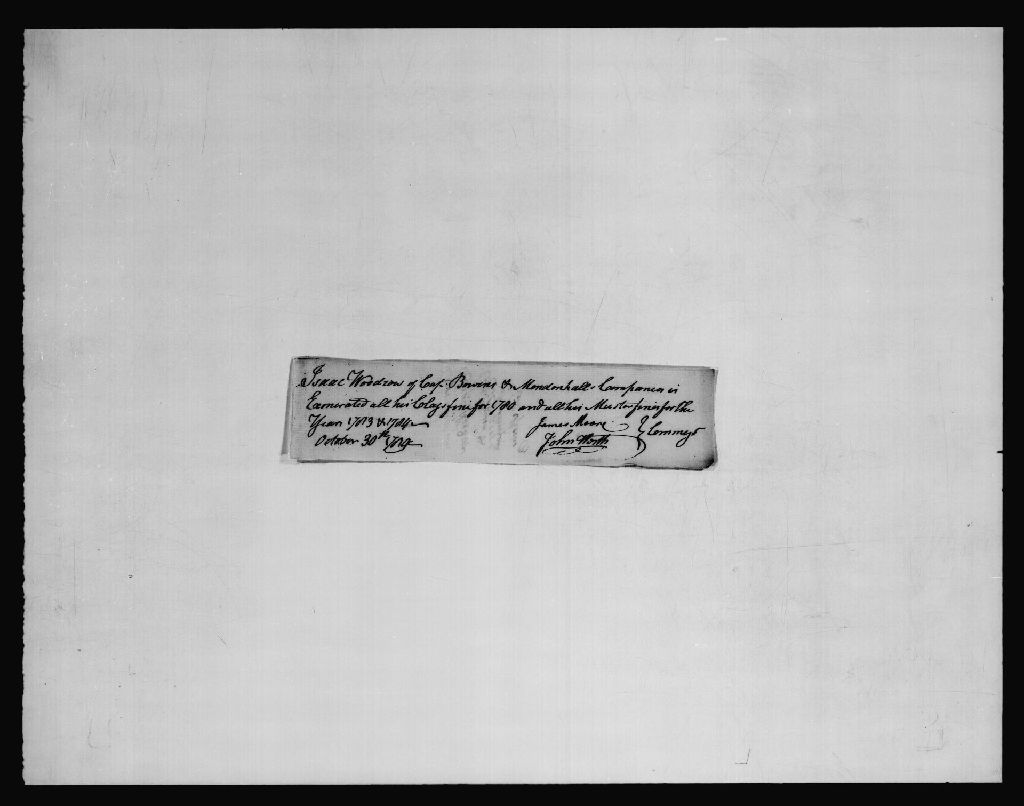 Isaac Woodrow of Cap. Bowens & Mendenhalls Companies is
Exonerated all his Class fine for 1780 and all his Muster fines for the
Years 1783 & 1784
James Moore
October 30th 1784
John Worth
Commrs